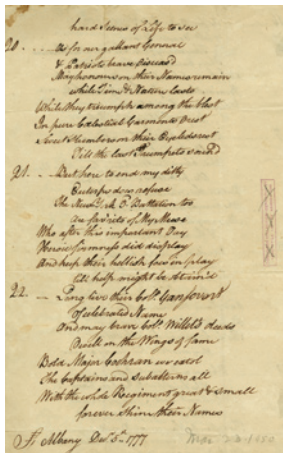 hard Scenes of Life to see
20. As for our gallant General
& Patriots brave
May honours on their Names remain
while Time & Nature lasts
While they triumph among the blest
In pure Celestial Garments Drest
Sweet Slumbers on their Eyelids rest
Till the last Trumpets sound
21. But here to end my ditty
refuse
The Battalion too
My Muse
Who after this important Day
Heroic firmness did display
And keep their hellish foes in play
till help might be
22. Long live their Coll. Gansevort
Of celebrated Name
And may brave Coll. Willet's deeds
Dwell on the Wings of fame
Bold Major Cochran we extol
The Captains and Subalterns all
With the whole Regiment great & small
forever Shine their Names
Albany Decr. 5th. 1777